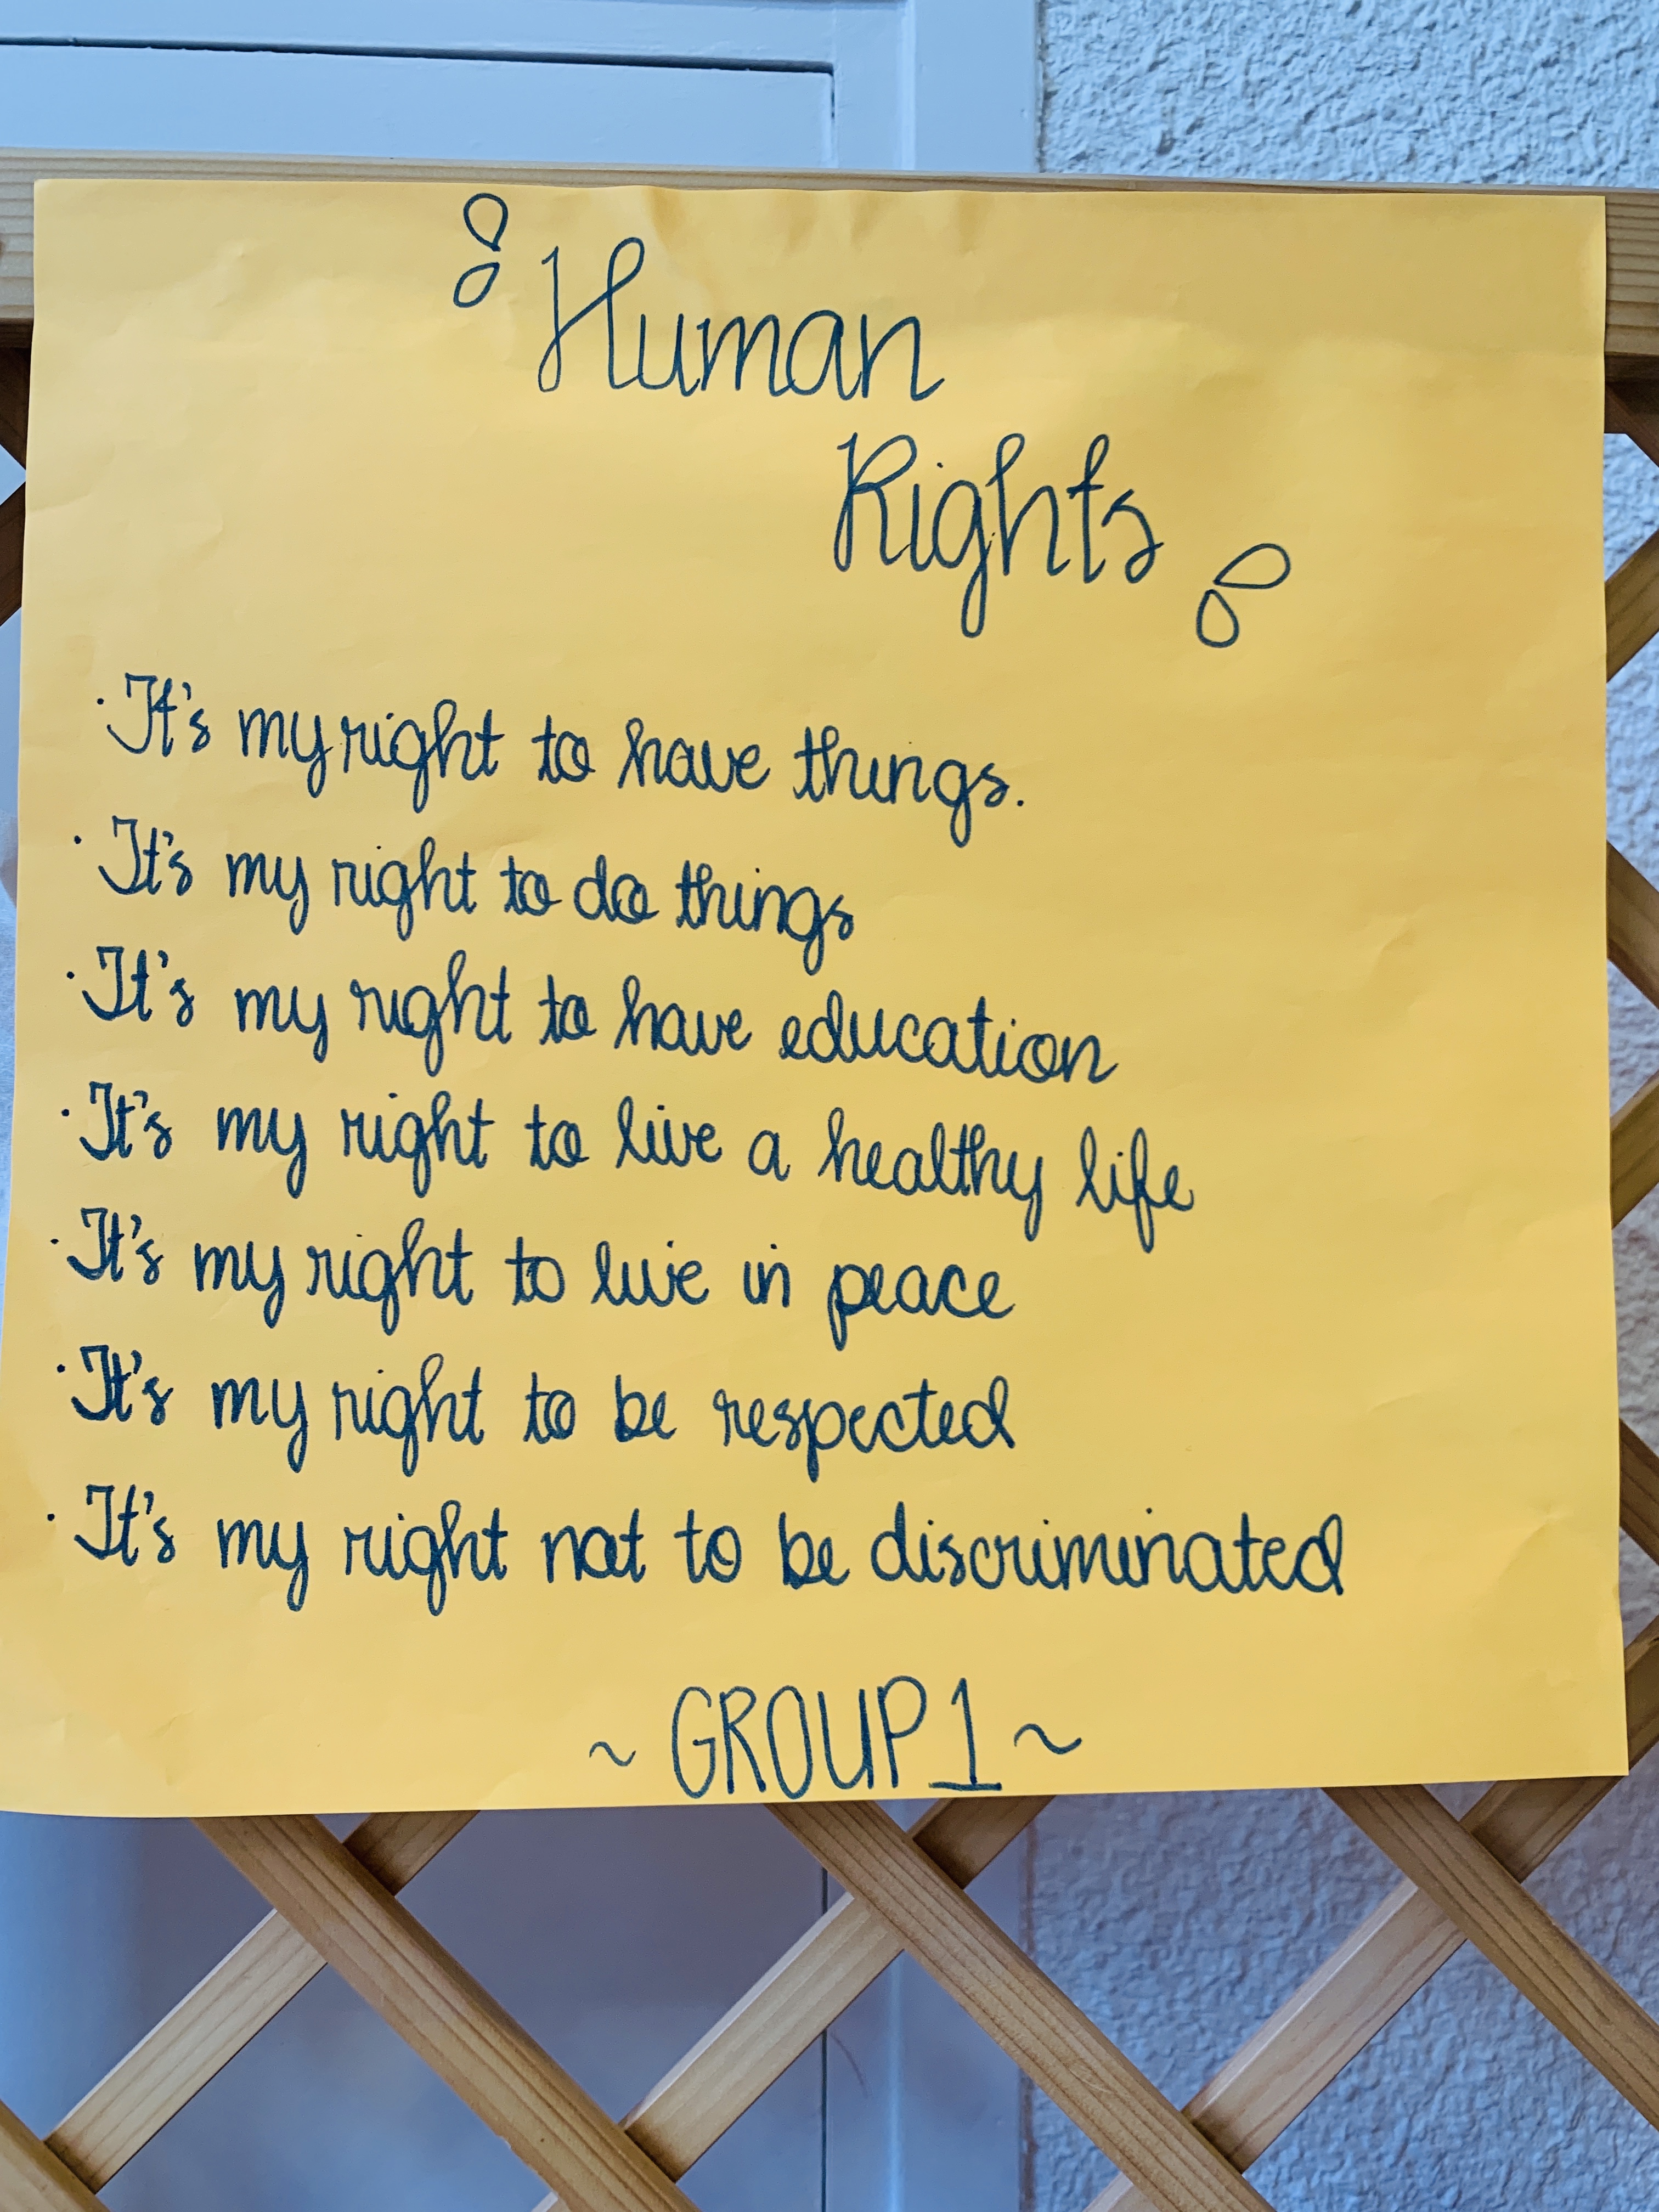 Human
Rights
· It's my right to have things.
· It's my right to do things
· It's my right to have education
· It's my right to live a healthy life
· It's my right to live in peace
· It's my right to be respected
· It's my right not to be discriminated
~ GROUP 1 ~